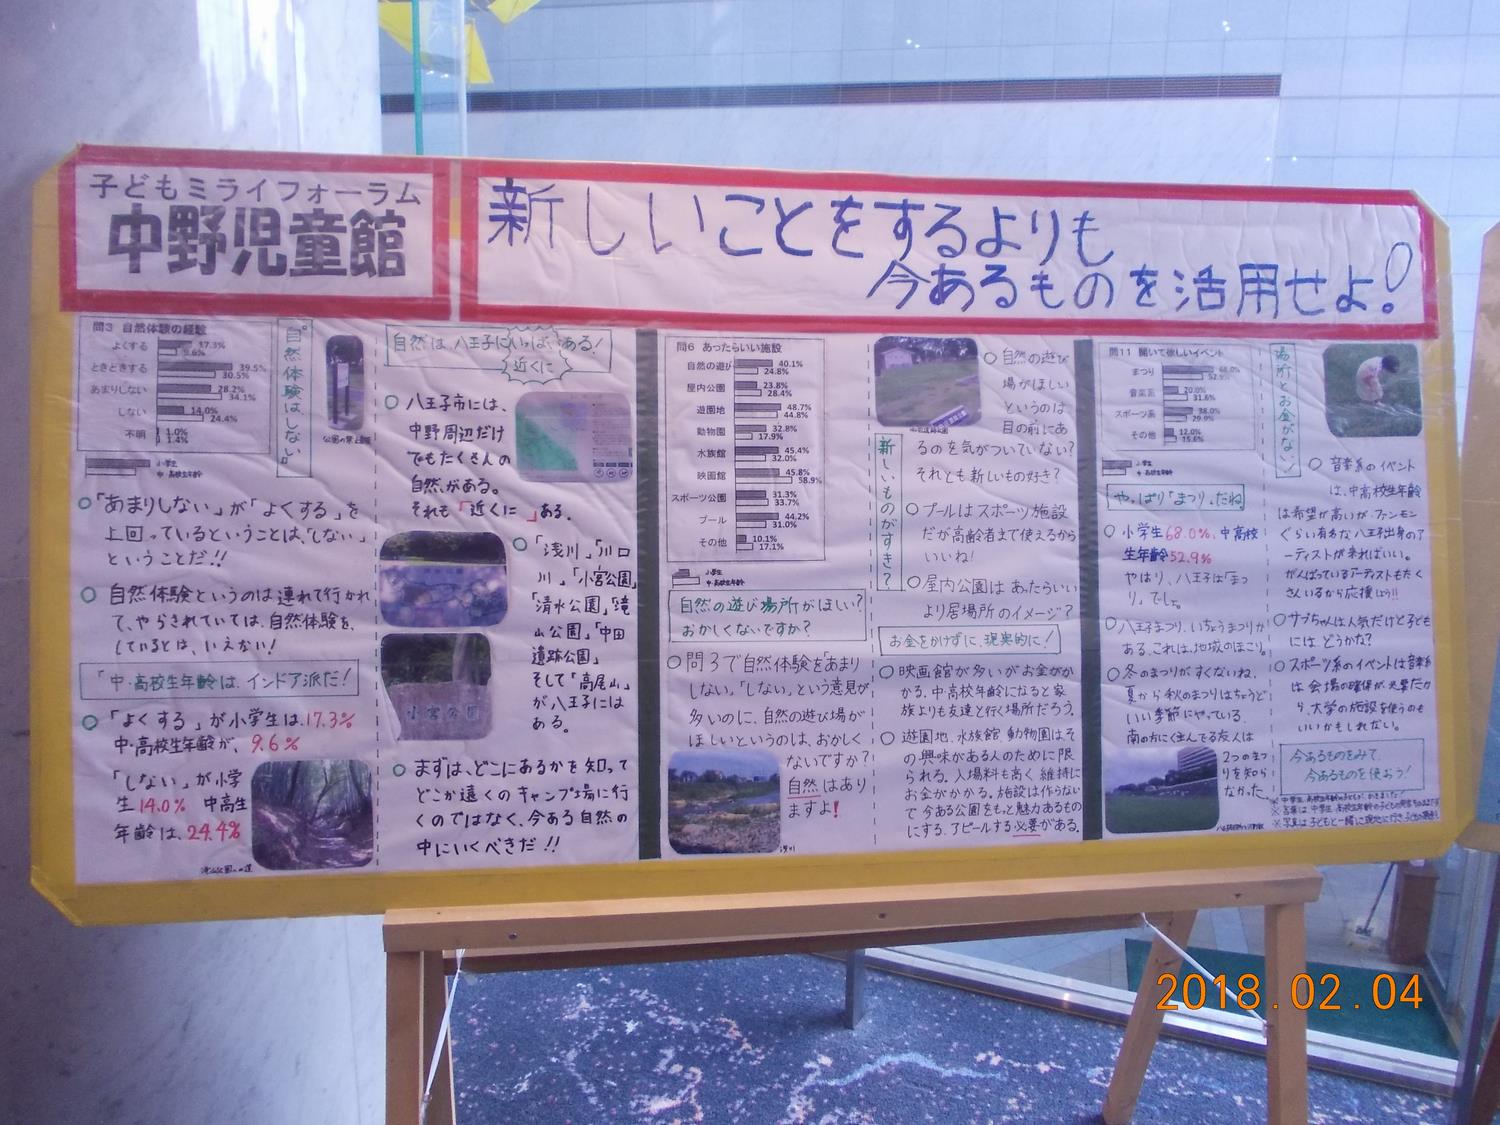 子どもミライフォーラム
中野児童館
新しいことをするよりも
今あるものを活用せよ!
問3 自然体験の経験
よくする 17.3% 9.6%
ときどきする 39.5% 30.5%
あまりしない 28.2% 34.1%
しない 14.0% 24.4%
不明 1.0% 1.4%
小学生
中・高校生年齢
自然体験はしない。
○「あまりしない」が「よくする」を
上回っているということは、「しない」
ということだ!!
○自然体験というのは連れて行かれ
て、やらされていては、自然体験を、
しているとは、いえない!
「中・高校生年齢は、インドア派だ!
○「よくする」が小学生は、17.3%
中・高校生年齢が、9.6%
「しない」が小学
生14.0% 中高生
年齢は、24.4%
自然は、八王子にいっぱいある!
近くに
○八王子市には、
中野周辺だけ
でもたくさんの
自然がある。
それも「近くに」ある。
○「浅川」「川口
川」「小宮公園」
「清水公園」「滝
山公園」「中田
遺跡公園」
そして「高尾山」
が八王子には
ある。
小宮公園
○まずは、どこにあるかを知って
どこか遠くのキャンプ場に行
くのではなく、今ある自然の
中にいくべきだ!!
問6 あったらいい施設
自然の遊び 40.1% 24.8%
屋内公園 23.8% 28.4%
遊園地 48.7% 44.8%
動物園 32.8% 17.9%
水族館 45.4% 32.0%
映画館 45.8% 58.9%
スポーツ公園 31.3% 33.7%
プール 44.2% 31.0%
その他 10.1% 17.1%
小学生
中・高校生年齢
自然の遊び場所がほしい?
おかしくないですか?
○問3で自然体験を「あまり
しない」「しない」という意見が
多いのに、自然の遊び場が
ほしいというのは、おかしく
ないですか?
自然はあり
ますよ!
浅川
○自然の遊び
場がほしい
というのは
目の前にあ
るのを気がついていない?
それとも新しいもの好き?
新しいものがすき?
○プールはスポーツ施設
だが高齢者まで使えるから
いいね!
○屋内公園はあったらいい
より居場所のイメージ?
お金をかけずに、現実的に!
○映画館が多いがお金がか
かる。中・高校年齢になると家
族よりも友達と行く場所だろう。
○遊園地、水族館、動物園はそ
の興味がある人のために限
られる。入場料も高く維持に
お金がかかる。施設は作らない
で今ある公園をもっと魅力あるもの
にする。アピールする必要がある。
問11 開いて欲しいイベント
まつり 68.0% 52.9%
音楽系 20.0% 31.6%
スポーツ系 38.0% 29.9%
その他 12.0% 15.6%
小学生
中・高校生年齢
やっぱり「まつり」だね
○小学生68.0%、中高校
生年齢52.9%
やはり、八王子は「まつ
り」でしょ。
○八王子まつり、いちょうまつりが
ある。これは、地域のほこり。
○冬のまつりがすくないね。
夏から秋のまつりはちょうど
いい季節にやっている。
南の方に住んでる友人は
2つのまつ
りを知ら
なかった。
場所とお金がない
○音楽系のイベント
は、中高校生年齢
は希望が高いが、ファンモン
ぐらい有名な八王子出身のア
ーティストが来ればいい。
がんばっているアーティストもたく
さんいるから応援しよう!!
○サブちゃんは人気だけど子ども
には、どうかな?
○スポーツ系のイベントは音楽系
は会場の確保が大変だか
ら、大学の施設を使うのも
いいかもしれない。
今あるものをみて、
今あるものを使おう!
2018.02.04